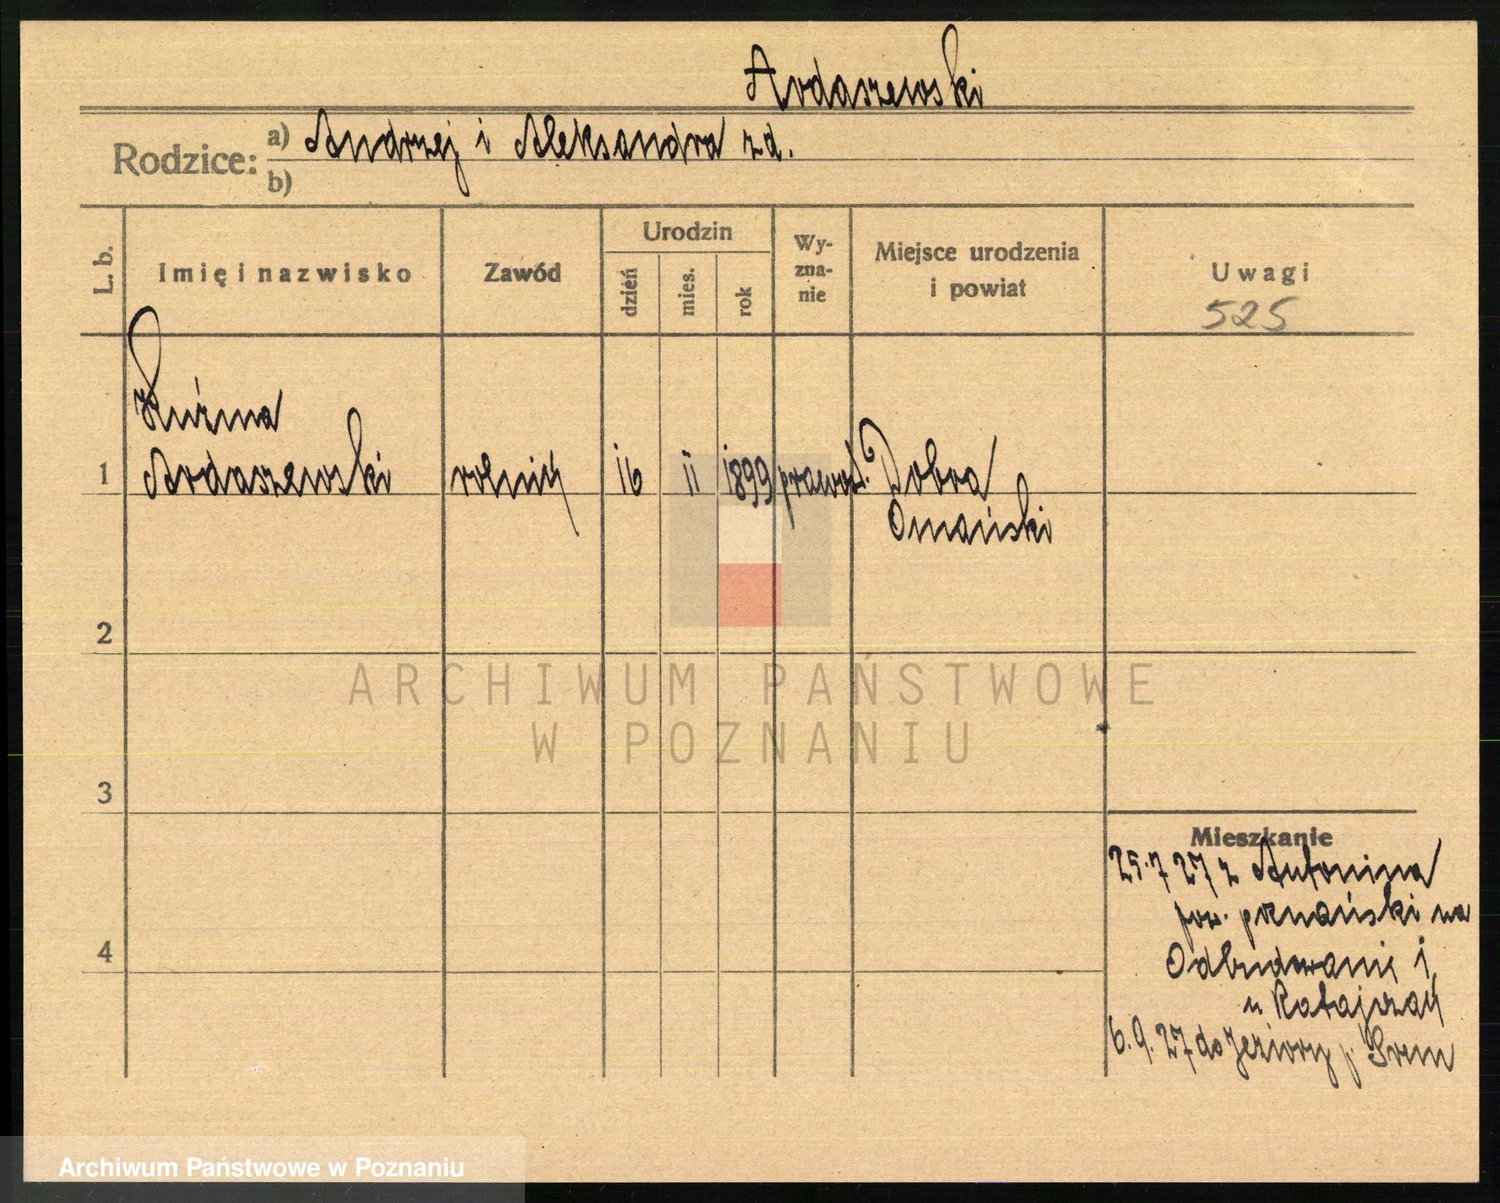 Ardaszewski
Rodzice: a) Andrzej i Aleksandra zd.
b)
L. b.
Imię i nazwisko
Zawód
Urodzin
dzień
mies.
rok
Wy-
zna-
nie
Miejsce urodzenia
i powiat
Uwagi
525
Kuźma
1 Ardaszewski rolnik 16 II 1899 prawosł. Dobra
Omański
2
3
4
Mieszkanie
25.7 27 z Antonina
pow. poznański na
Odbudowanie 1,
u Ratajczak
6.9.27 do Jeziory p. Śrem
ARCHIWUM PAŃSTWOWE
W POZNANIU
Archiwum Państwowe w Poznaniu